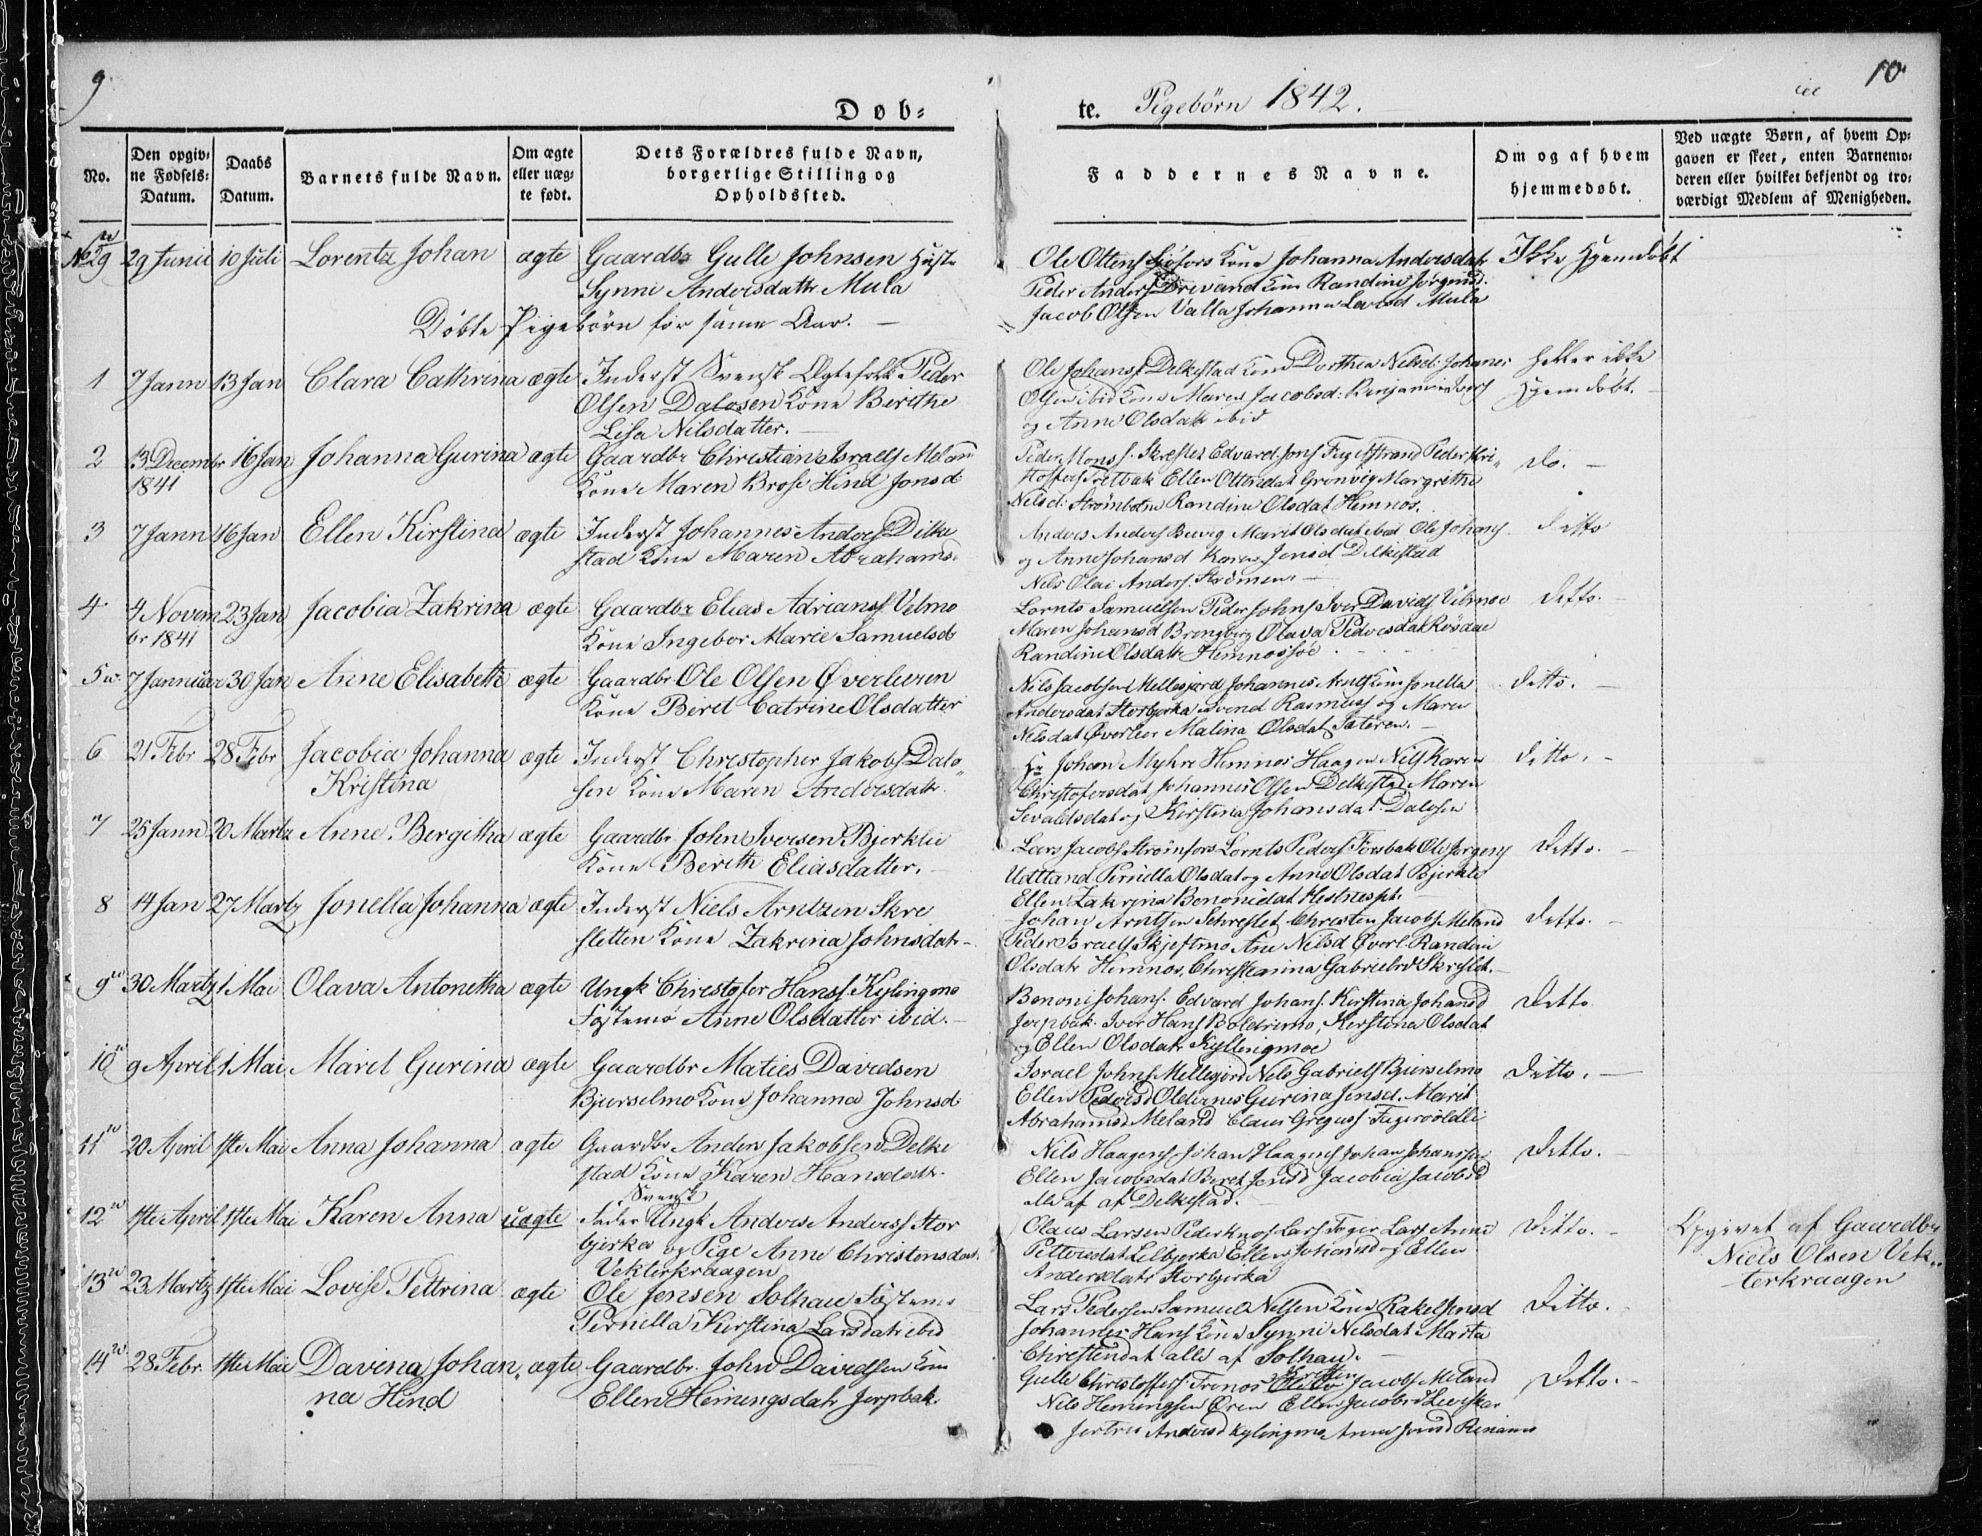 9
10
Døb-
te. Pigebørn 1842.
No.
Den opgiv-
ne Fødsels-
Datum.
Daabs
Datum.
Barnets fulde Navn.
Om ægte
eller uæg-
te født.
Dets Forældres fulde Navn,
borgerlige Stilling og
Opholdssted.
Faddernes Navne.
Om og af hvem
hjemmedøbt.
Ved uægte Børn, af hvem Op-
gaven er skeet, enten Barnemo-
deren eller hvilket bekjendt og tro-
værdigt Medlem af Menigheden.
No 29 29 Junii 10 Juli Lorentz Johan ægte Gaardbr Gulle Johnsen Hust
Synni Andersdattr Mula
Ole Ottens Kone Johanna Andersdatr
Peder Anders Drevand Kone Randine Jørgensd.
Jacob Olsen Valla Johanna Larsd Mula
Ikke Hjemdøbt
Døbte Pigebørn for samme Aar. —
1 7 Jann 13 Jan Clara Cathrina ægte Inderst Svensk Ægtefolk Peder
Olsen Dalosen Kone Berithe
Lisa Nilsdatter. —
Ole Johans. Delkestad Kone Dorthea Nelsd. Johanes
Olsen ibid Kone Maren Jacobsd. Benjamin Ivers
og Anne Olsdatr ibid
Heller ikke
Hjemdøbt. —
2 13 Decembr 16 Jan Johanna Gurina ægte Gaardbr Christian Israels Meland
1841 Kone Maren Brose Hind Jonsd
Peder Mons. Skreslet Edvard Jons Fugelstrand Peder Kri-
stoffers Fretbak Ellen Ottersdat Grønvig Margrithe
Nelsd. Strømbotn Randine Olsdat Hemnes.
Do. —
3 7 Jann 16 Jan Ellen Kirstina ægte Inderst Johannes Anders Dilke
stad Kone Maren Abrahamsd
Anders Anders Burvig Marit Olsdat ibid Ole Johans
og Anne Johansd Karen Jensd Delkestad
Nels Olai Anders. Strømen. —
Ditto
4 4 Novem 23 Jan Jacobia Zakrina ægte Gaardbr Elias Adrians. Velmo
br 1841 Kone Ingebor Marie Samuelsd
Lornts Samuelsen Peder Johns Iver Davids Velmoe
Maren Johansd Brengberg Olava Pedersdat Røsdae
Randine Olsdatr Hemnessøe
Ditto. —
5 7 Januar 30 Jan Anne Elisabeth ægte Gaardbr Ole Olsen Øverleeren
Kone Berit Catrine Olsdatter
Nils Jacobsen Mellesjord Johannes Jonella
Andersdat Storbjerka Svend Rasmus og Maren
Nelsdat Øverleer Malina Olsdat Sateren. —
Ditto. —
6 21 Febr 28 Febr Jacobia Johanna ægte Inderst Christopher Jakobs Dalo-
Kristina sen Kone Maren Andersdatr.
Hr Johan Myhre Hemnes Haagen Nils Karen
Christofersdat Johannes Olsen Delkestad Maren
Sevaldsdat og Kirstina Johansdat Dalosen
Ditto. —
7 25 Jann 20 Martz Anne Bergitha ægte Gaardbr John Iversen Bjerklie
Kone Berith Eliasdatter. —
Lars Jacobs Strømfors Lornts Peders Forsbak Ole Jørgens
Udtland Pernella Olsdat og Anne Olsdat Bjerklie
Ellen Zakrina Benonidat Hestnes
Ditto. —
8 14 Jan 27 Martz Jonella Johanna ægte Inderst Niels Arntzen Skre
sletten Kone Zakrina Johnsdatr —
Johan Arntsen Schreslet Christen Jacobs. Meland
Peder Israels Skjestmo Ane Nilsd Øverl. Randini
Olsdatr Hemnes, Christianna Gabrielsd Skreslet. —
Ditto. —
9 30 Martz 1 Mai Olava Antonetha ægte Ungk Christofer Hans. Kylingmo
Festemø Anne Olsdatter ibid. —
Benoni Johans. Edvard Johans. Kirstina Johansd
Jerpbak. Iver Hans Boldremo, Kirstina Olsdat
og Ellen Olsdatr Kyllingmoe
Ditto
10 9 April 1 Mai Marit Gurina ægte Gaardbr Maties Davidsen
Bjurselmo Kone Johanna Johnsd
Israel Johns. Mellesjord Nels Gabriels Bjurselmo
Ellen Pedersd Oldernes Gurina Jensd. Marit
Abrahamsd Meland Claus Gregus. Fagervoldli
Ditto. —
11 20 April 1ste Mai Anna Johanna ægte Gaardbr Anders Jakobsen Delke
stad Kone Karen Hansdatr.
Nils Haagens. Johan Haagens Johan Johansen
Ellen Jacobsdat Beret Jensd Jacobia Jacobsd
alle af af Delkestad. —
Ditto. —
12 1ste April 1ste Mai Karen Anna uægte Svensk
Fader Ungk Anders Anders Stor
bjerka og Pige Anne Christensdat.
Vekterkraagen
Olaus Larsen Peder Lars. Lars Anne
Pettersdat Lelbjerka Ellen Johansd og Ellen
Andersdatr Storbjerka
Ditto. —
Opgivet af Gaardbr
Niels Olsen Vek-
terkraagen
13 23 Martz 1ste Mai Lovise Pettrina ægte Ole Jensen Solhaue Festemø
Pernella Kirstina Larsdatr ibid
Lars Pedersen Samuel Nelsen Kone Rakel Jensd
Johannes Hans Kone Synni Nelsdat Marta
Christendat alle af Solhau. —
Ditto. —
14 28 Febr. 1ste Mai Davina Johan ægte Gaardbr. John Davidsen Kone
na Hind Ellen Hemingsdatr Jerpbak.
Gulle Christoffers. Jacobs Meland
Nils Hemingsen Øren Ellen Jacobsd
Andersd Kylingmo Anne Jonsd
Ditto. —